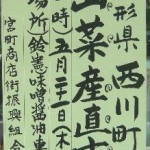 形県 西川町
山菜産直
時)五月二十一日(木
場所 鈴憲味噌醤油
宮町商店街振興組合